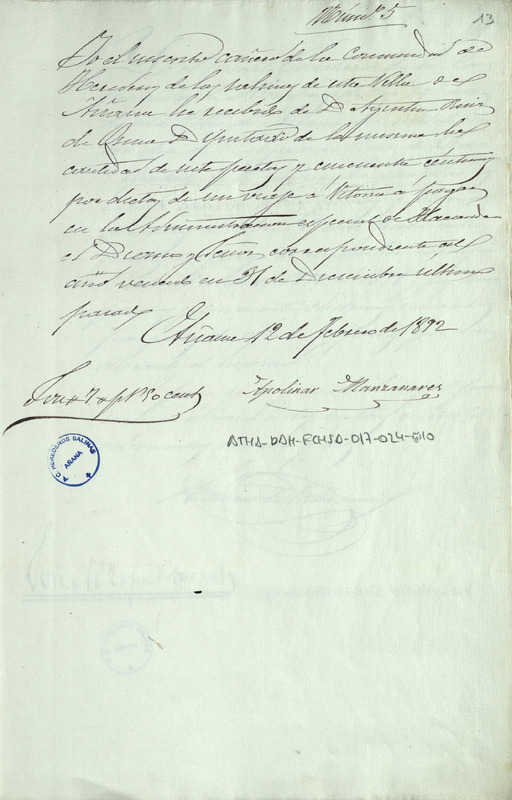 Núm.º 5
13
Yo el infrascrito cañero de la Comunidad de
Herederos de las salinas de esta Villa de
Añana he recibido de D. Agustin Ruiz
de Diputado de la misma la
cantidad de siete pesetas y cincuenta céntimos
por dietas de un viaje á Vitoria á pagar
en la Administracion especial de Hacienda
el correspondiente al
año vencido en 31 de Diciembre último
pasado
Añana 12 de Febrero de 1892
Son 7 pts 50 cent
Apolinar Manzanares
ATHA-DAH-FCHSA-017-024-010
A. C. HEREDEROS SALINAS
AÑANA